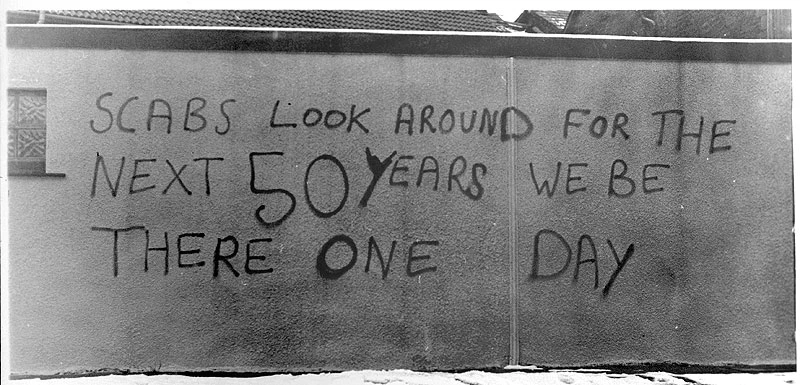 SCABS LOOK AROUND FOR THE
NEXT 50 YEARS WE BE
THERE ONE DAY